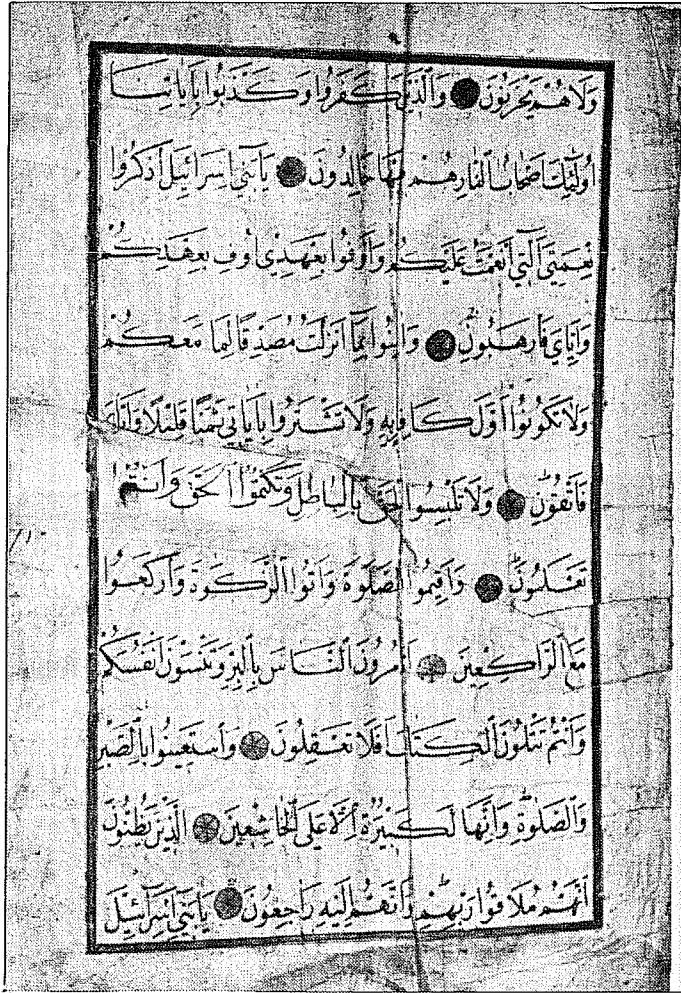 وَلَا هُمْ يَحْزَنُونَ وَالَّذِينَ كَفَرُوا وَكَذَّبُوا بِآيَاتِنَا
أُولَئِكَ أَصْحَابُ النَّارِ هُمْ فِيهَا خَالِدُونَ يَابَنِي إِسْرَائِيلَ اذْكُرُوا
نِعْمَتِيَ الَّتِي أَنْعَمْتُ عَلَيْكُمْ وَأَوْفُوا بِعَهْدِي أُوفِ بِعَهْدِكُمْ
وَإِيَّايَ فَارْهَبُونِ وَآمِنُوا بِمَا أَنْزَلْتُ مُصَدِّقًا لِمَا مَعَكُمْ
وَلَا تَكُونُوا أَوَّلَ كَافِرٍ بِهِ وَلَا تَشْتَرُوا بِآيَاتِي ثَمَنًا قَلِيلًا وَإِيَّايَ
فَاتَّقُونِ وَلَا تَلْبِسُوا الْحَقَّ بِالْبَاطِلِ وَتَكْتُمُوا الْحَقَّ وَأَنْتُمْ
تَعْلَمُونَ وَأَقِيمُوا الصَّلٰوةَ وَآتُوا الزَّكٰوةَ وَارْكَعُوا
مَعَ الرَّاكِعِينَ أَتَأْمُرُونَ النَّاسَ بِالْبِرِّ وَتَنْسَوْنَ أَنْفُسَكُمْ
وَأَنْتُمْ تَتْلُونَ الْكِتَابَ أَفَلَا تَعْقِلُونَ وَاسْتَعِينُوا بِالصَّبْرِ
وَالصَّلٰوةِ وَإِنَّهَا لَكَبِيرَةٌ إِلَّا عَلَى الْخَاشِعِينَ الَّذِينَ يَظُنُّونَ
أَنَّهُمْ مُلَاقُوا رَبِّهِمْ وَأَنَّهُمْ إِلَيْهِ رَاجِعُونَ يَابَنِي إِسْرَائِيلَ